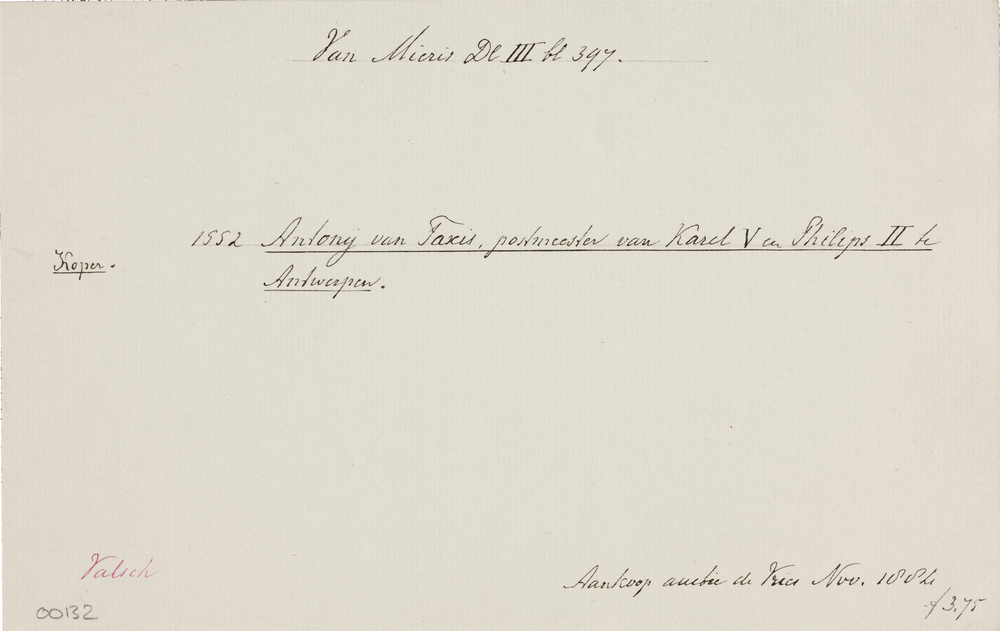 Van Mieris Dl III bl 397.
1552 Antony van Taxis, postmeester van Karel V en Philips II te
Koper.
Antwerpen.
Valsch
Aankoop auctie de Vries Nov. 1884
f 3.75
00132